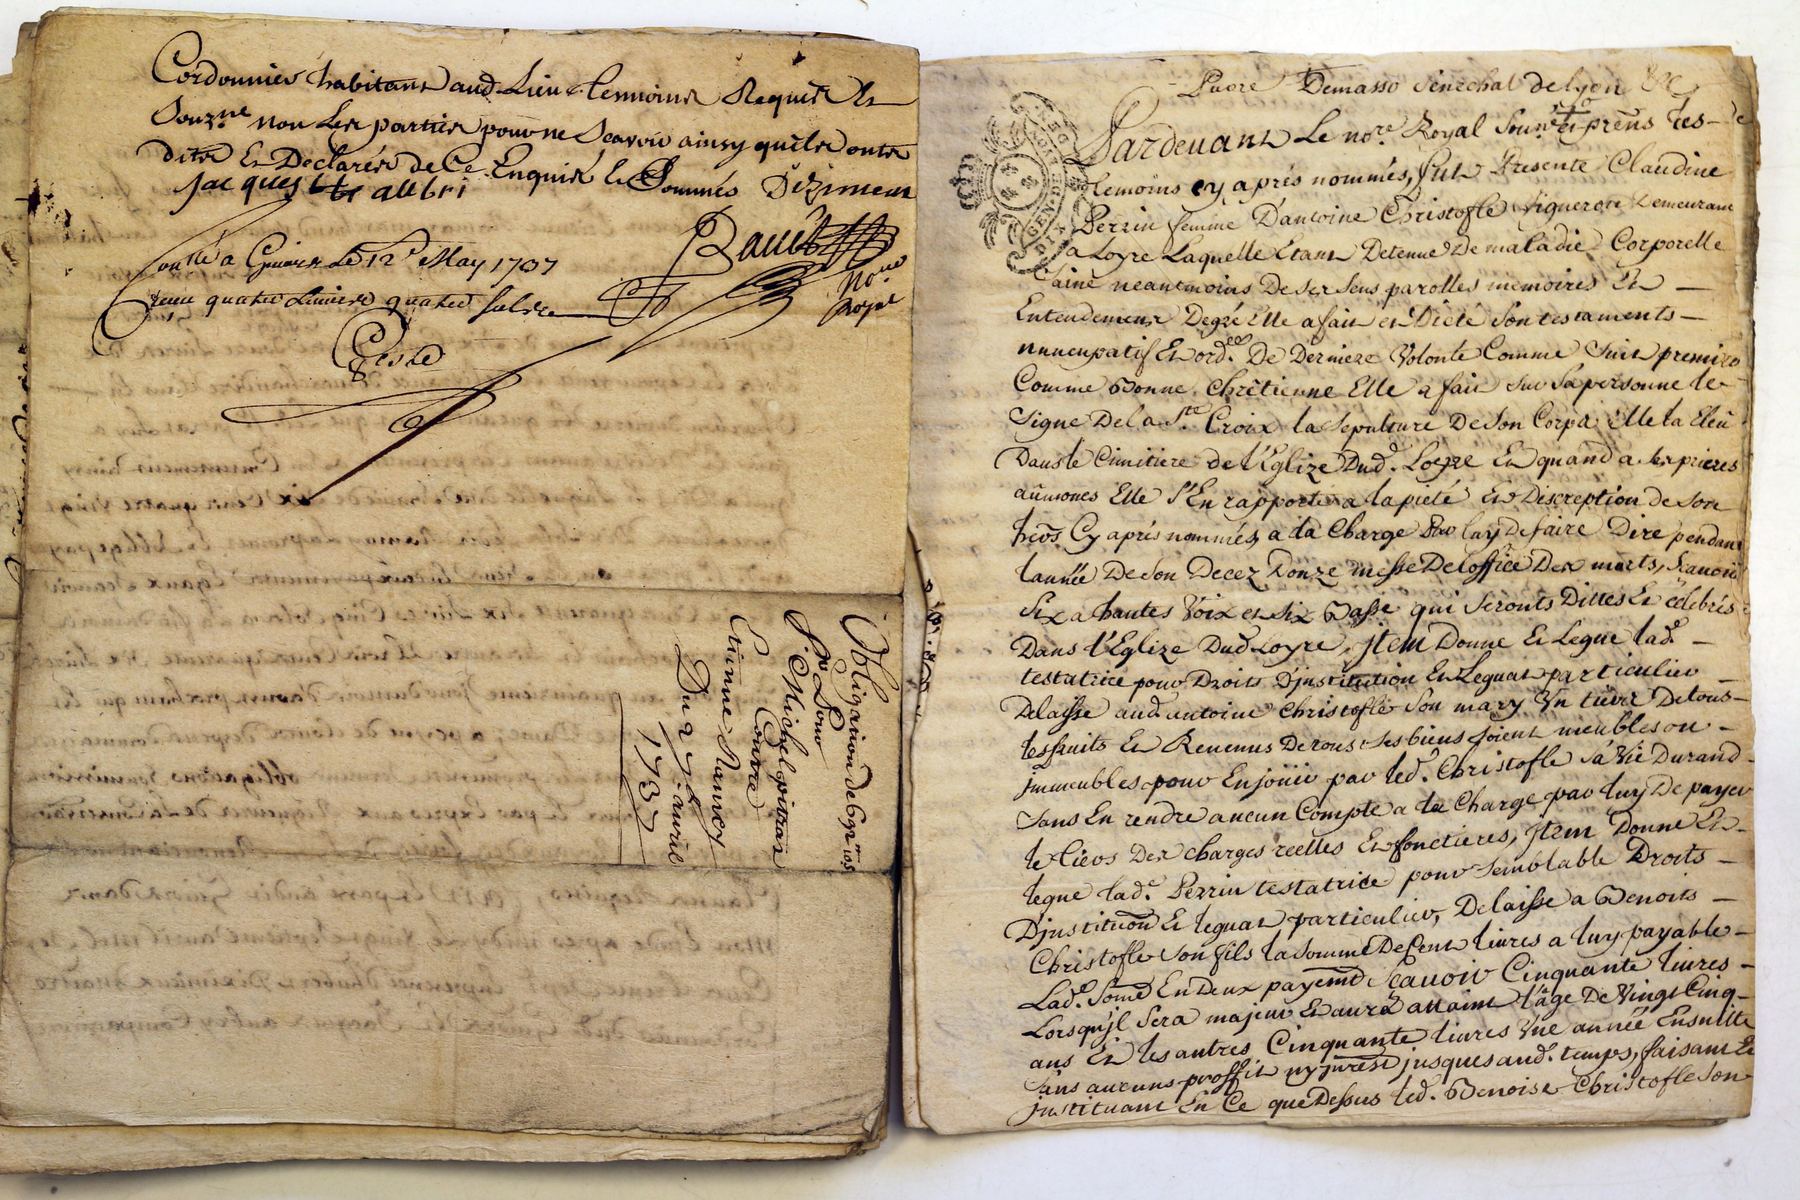 Cordonnier habitant aud. Lieu temoins Requis et
Souz.ne non les parties pour ne Scavoir ainsy quils onts
dits et Declarés de Ce Enquis et Sommés Dizimeux
jacques allbri
Bauet
No.re
Royal
Conllé a le 12e May 1737
Receu quatre Livres quatre sols
Obligation de 690 # 10 s
Pour
S. Michel pitras
Contre
Etienne Rancy
Du 27e avril
1737
Pierre Demasso Sénéchal de lyon &c
Pardevant Le no.re Royal Sous.né et prèns tes-
temoins cy après nommés, fut Presente Claudine
Perrin femme D'antoine Christofle Vigneron Demeurant
a Loyre Laquelle Etant Detenue De maladie Corporelle
Saine neantmoins De ses sens parolles memoires Et
Entendement Degré Elle a fait et Dicté Son testaments
nuncupatif Et ord.ce De Derniere Volonté Comme Suit premiro
Comme Bonne Chrêtienne Elle a fait sur Sa personne le
Signe De la Ste Croix la Sepulture De Son Corps Elle la Eleü
Dans le Cimitiere de l'Eglize Dud. Loyre Et quand a les prieres
aumones Elle S'En rapporte a la pieté et Discreption de Son
heõs Cy aprés nommés, a la Charge Par luy De faire Dire pendant
l'année De Son Decez Donze messe De l'office Des morts, Scavoir
Six a hautes Voix et six Basse qui Seronts Dittes Et célebrés
Dans l'Eglize Dud Loyre, jtem Donne Et Legue lad.e
testatrice pour Droits D'jnstitution Et Leguat particulier
Delaisse aud. antoine Christofle Son mary Un tiers De tous
les fruits Et Revenus De tous ses biens soient meubles ou
jmmeubles pour En joüir par led. Christofle Sa Vie Durand
Sans En rendre aucun Compte a la Charge par luy De payer
le tiers Des charges reelles Et fonctieres, jtem Donne Et
legue lad.e Perrin testatrice pour Semblable Droits
D'justitution Et leguat particulier, Delaisse a Benoits
Christofle Son fils la Somme De Cent livres a luy payable
Lad.e Somẽ En Deux payemt Scavoir Cinquante livres
Lorsqu'jl Sera majeur Et aura attaint l'âge De Vingt Cinq
ans Et les autres Cinquante livres Une année Ensuitte
Sans aucuns proffit ny jnrest jusques aud. temps, faisant Et
jnstituant En Ce que Dessus led. Benoist Christofle Son